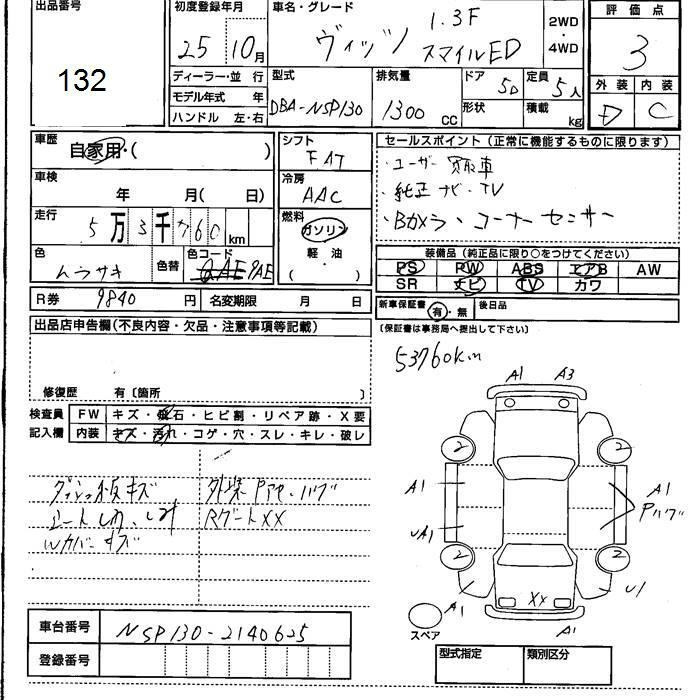 出品番号
132
初度登録年月
25 10月
車名・グレード
ヴィッツ 1.3F
スマイルED
2WD
・
4WD
評価点
3
外装 内装
D C
ディーラー・並 行
モデル年式 年
ハンドル 左・右
型式
DBA-NSP130
排気量
1300 CC
ドア 5D
形状
定員 5人
積載 kg
車歴
自家用・( )
車検
年 月( 日)
走行
5万3千760 km
色
ムラサキ
色替
色コード
9AE
シフト
FAT
冷房
AAC
燃料
ガソリン
軽・油
( )
セールスポイント(正常に機能するものに限ります)
・ユーザー買取車
・純正ナビ・TV
・Bカメラ・コーナーセンサー
装備品(純正品に限り○をつけてください)
PS PW ABS エアB AW
SR ナビ TV カワ
R券 9840 円
名変期限 月 日
新車保証書 有・無
後日品
(保証書は事務局へ提出して下さい)
出品店申告欄(不良内容・欠品・注意事項等記載)
修復歴 有〔箇所 〕
53760km
検査員
記入欄
FW キズ・飛石・ヒビ割・リペア跡・X要
内装 キズ・汚れ・コゲ・穴・スレ・キレ・破レ
ダッシュ板キズ
シートしわ、しみ
Wカバーキズ
外装
RゲートXX
A1 A3
2 2
A1 A1
UA1
2 2
A1 XX U1
A1
スペア
車台番号 NSP130-2140625
登録番号
型式指定 類別区分